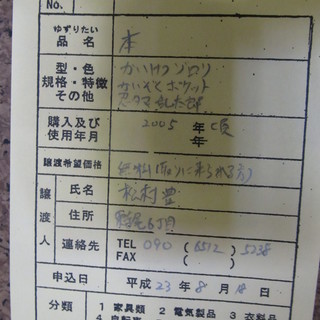 No.
ゆずりたい
品名 本
型・色 かいけつゾロリ
規格・特徴 かいぞくポケット
その他 忍たま乱太郎
購入及び 2005 年頃
使用年月 年
譲渡希望価格 無料(取りに来られる方)
譲渡人
氏名 松村豊
住所 6丁目
連絡先 TEL 090 (6512) 5238
FAX ( )
申込日 平成23年8月18日
分類 1 家具類 2 電気製品 3 衣料品
4 自転車